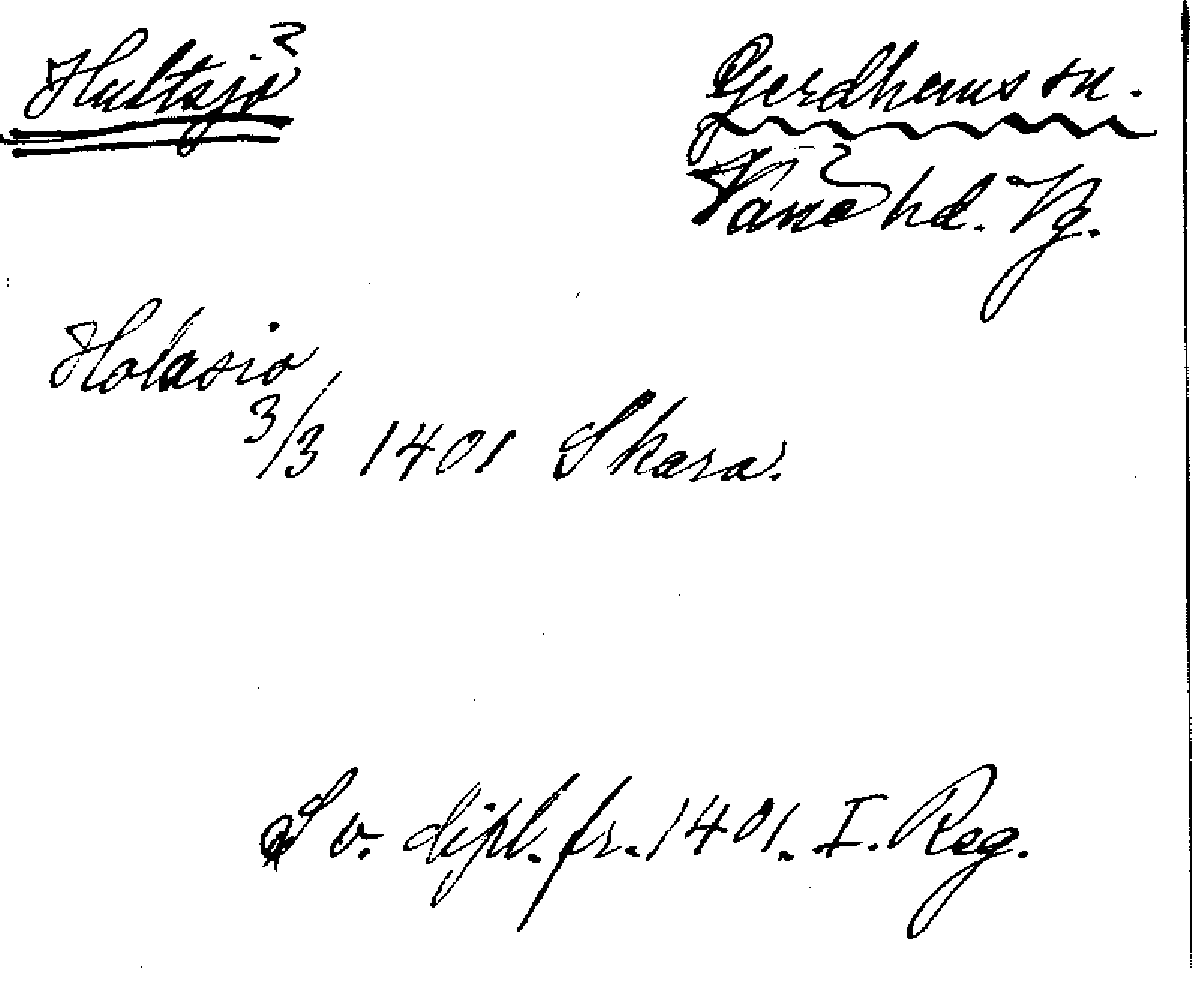 Hultsjö Gerdhems sn.
Väne hd. Vg.
Holasio
3/3 1401 Skara.
Sv. dipl. fr. 1401. I. Reg.